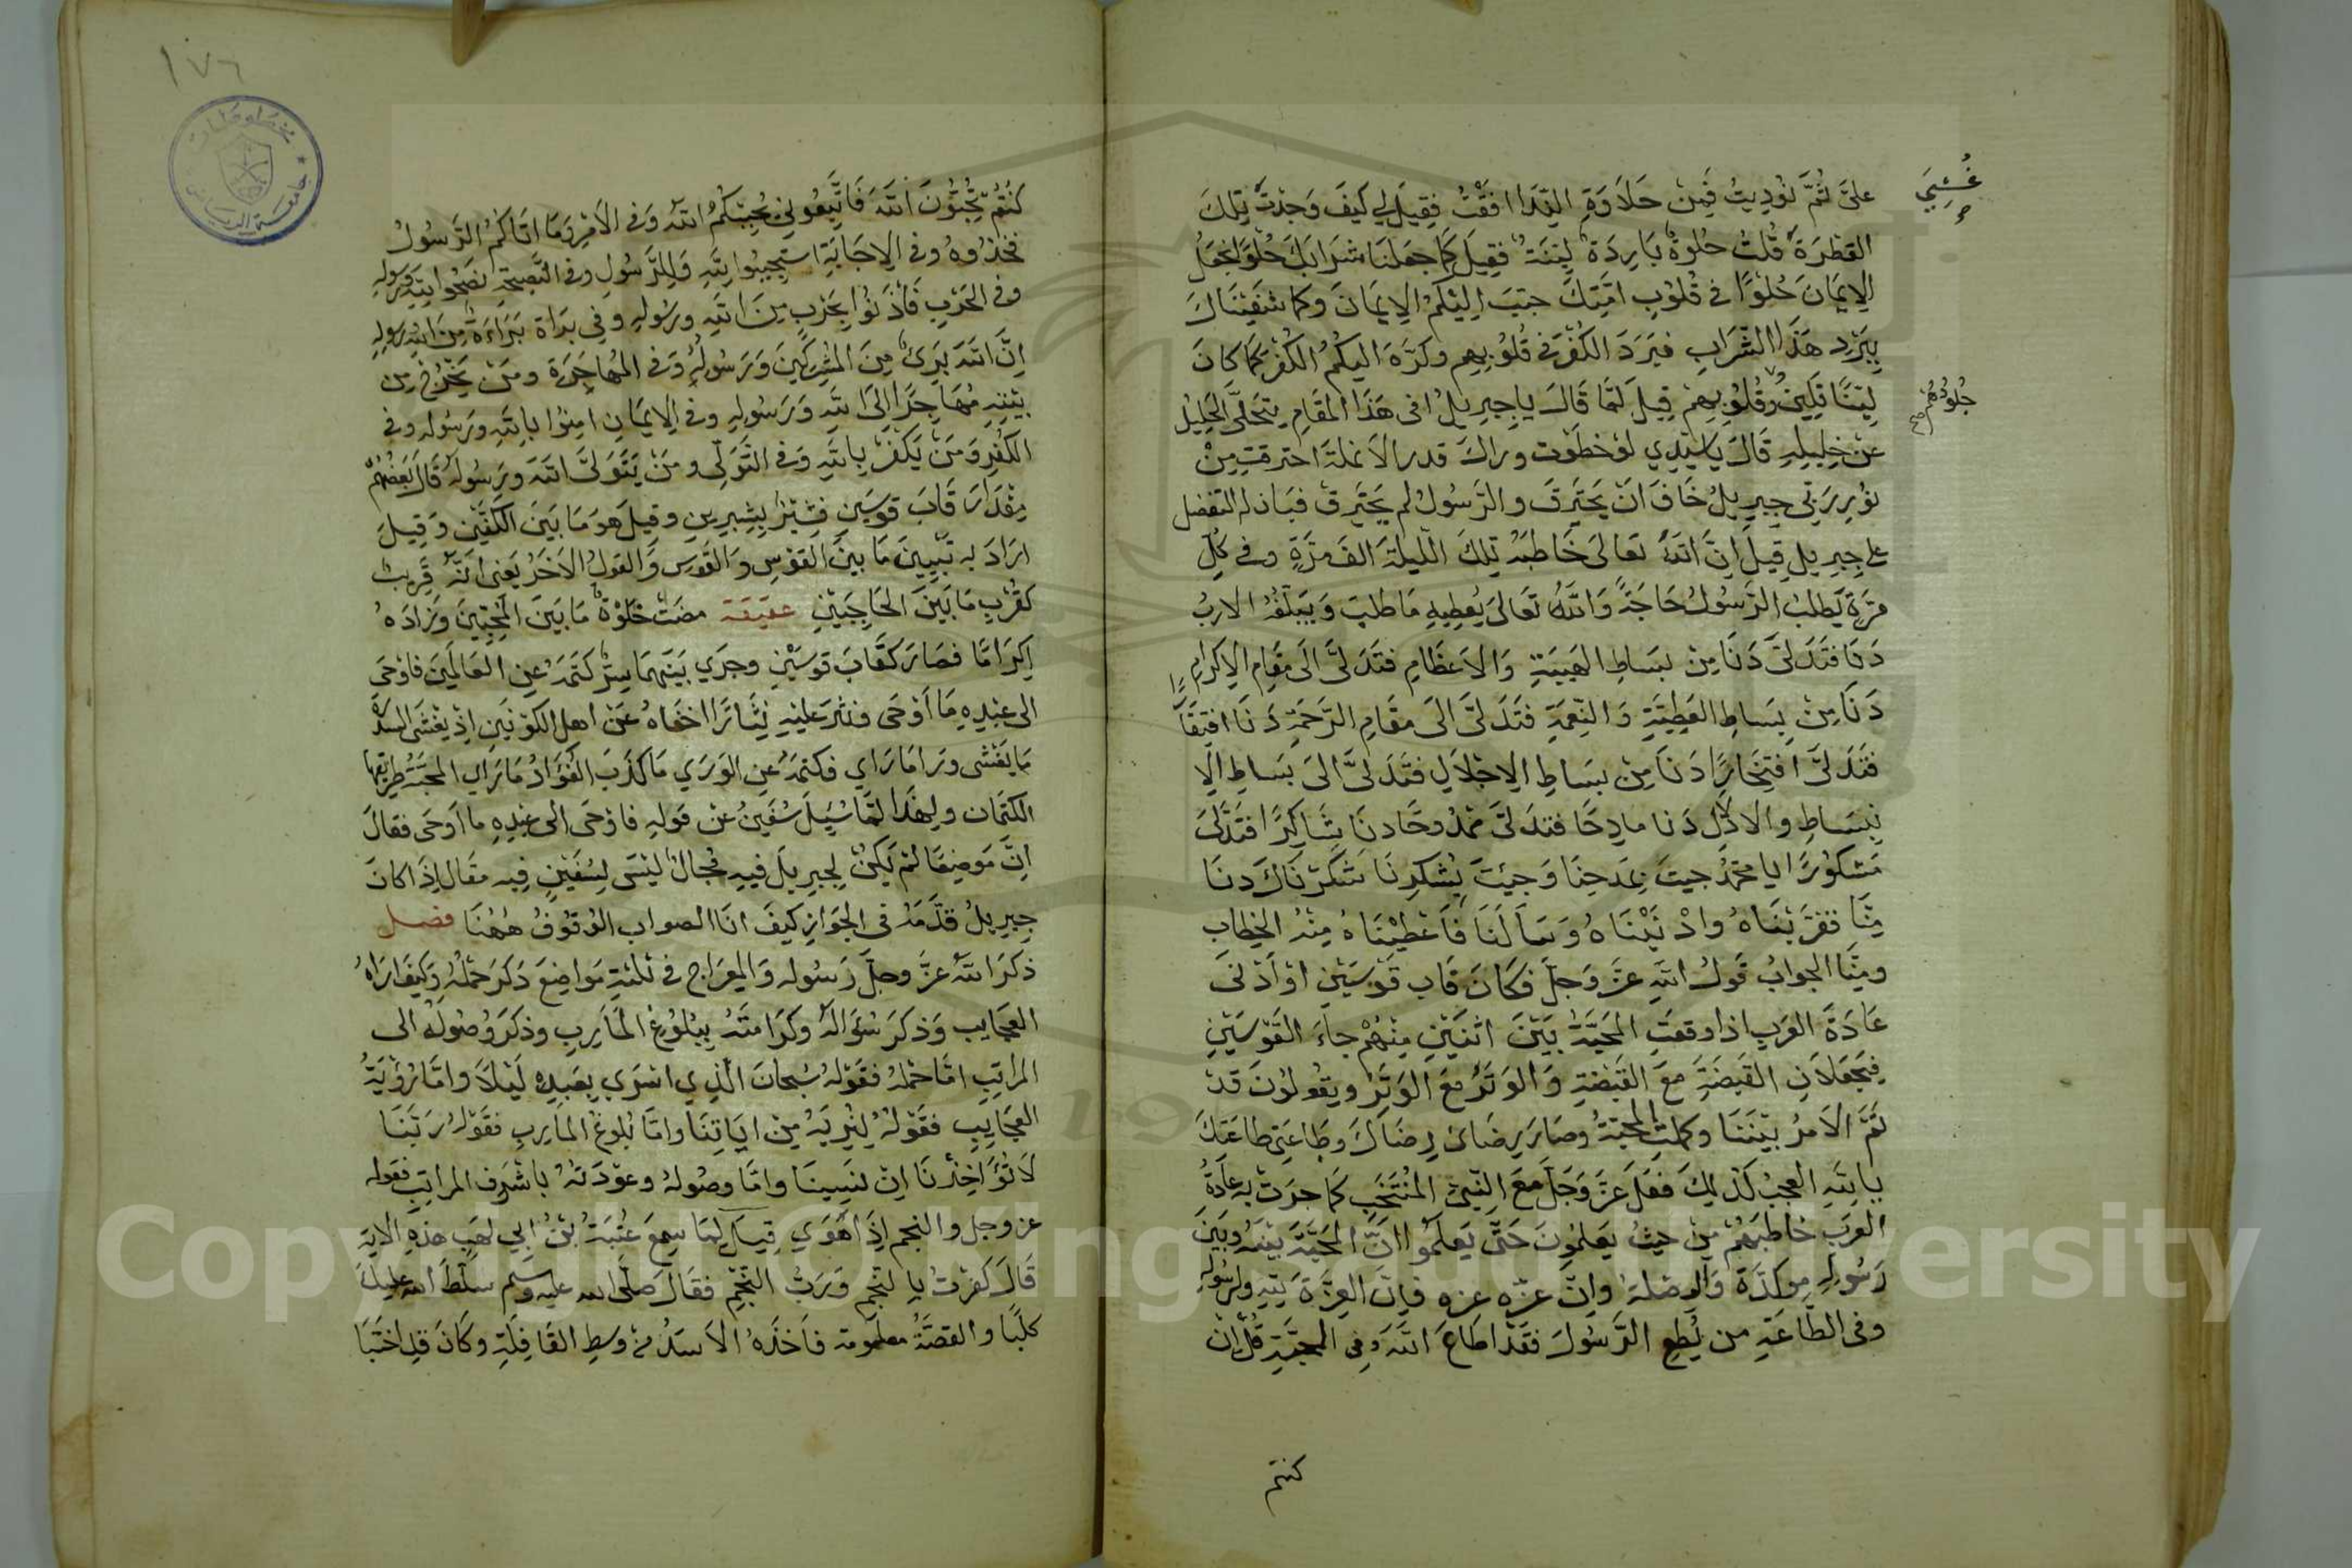 غُشِيَ
صح
على ثُمَّ نُودِيتُ فَمِنْ حَلَاوَةِ النِّدَا افَقْتُ فَقِيلَ لِي كَيفَ وَجَدْتَ تِلكَ
القَطْرَةَ قُلتُ حُلوةٌ بَارِدَةٌ لَيِّنَةٌ فقِيلَ كَمَا جعَلنَا شرَابَكَ حُلوًا نجعَلُ
الإيمَانَ حُلوًا في قُلُوبِ امَّتِكَ حبّبَ اليْكُمُ الايمَانَ وكما شفَيْنَاكَ
بِبَرْدِ هَذَا الشَّرَابِ فبَرَدَ الكُفْرَ في قُلُوبِهِم وكرَّهَ اليكُمُ الكُفْرَ كمَا كانَ
جُلُودُهُم صح
لَيِّنًا تَلِينُ وقُلُوبُهِمْ قِيلَ لَمَّا قَالَ يا جِبرِيلُ افى هَذَا المقَامِ يتخلَّى الخَلِيلُ
عن خلِيلِهِ قَالَ يا سَيّدِي لوْ خطَوْت وراكَ قدر الانملَة احترقت مِنْ
نُورِ رَبّى جبرِيلُ خَافَ انَ يَحتَرقَ والرَّسُولُ لم يحتَرِق فبَان له التفضل
على جِبرِيل قِيلَ اِنَّ اللهَ تعَالى خَاطبَهُ تِلكَ اللَّيلَةَ الفَ مَرَّةٍ وفى كُلِّ
مَرةٍ يَطلبُ الرَّسُولُ حَاجَةً وَاللهُ تعَالىَ يُعطِيهِ مَا طلبَ وَيَبَلّغُهُ الاربُ
دَنَا فتَدَلىَّ دَنَا مِنْ بسَاطِ الهيبَةِ وَالاعظَامِ فتَدَلىَّ الَى مقَامِ الاِكرَامِ
دَنَا مِنْ بِسَاطِ العَطِيَّةِ وَالنِّعمَةِ فتَدَلىَّ الىَ مقَامِ الرَّحمَةِ دَنَا افتِقَارًا
فتَدَلىَّ افتِخَارًا دَنَا مِنْ بسَاطِ الاِجْلَالِ فتَدَلىَّ الىَ بسَاطِ الاِ
نبِسَاطِ والادْلَالِ دَنا مادِحًا فتدَلىَّ ممْدُوحًا دنَا شَاكِرًا فتَدَلىَّ
مَشكوُرًا ايا محمَّدُ جيتَ بمَدحِنَا وَجيْتَ بِشُكرِنَا شكَرْنَاكَ دنَا
مِنَّا فقرَّبْنَاهُ وادْنَيْنَاهُ وَسَألَنَا فَاعْطَيْنَاهُ مِنْهُ الخِطَاب
ومِنَّا الجوابُ قَولُ اللهِ عزَّ وَجلّ فكَانَ قَابَ قوْسَيْنِ اوْ ادْنىَ
عَادَةُ العَرَبِ اذا وقعتِ المحَبَّةُ بَيْنَ اثنَيْنِ مِنْهُمْ جاءَ القَوْسَيْنِ
فيَجعَلَانِ القَبضَةَ معَ القَبْضَةِ وَالوَتَرَ معَ الوَتَرِ ويقُولوُنَ قدْ
تَمَّ الامرُ بيْنَنَا وكملتِ المحبّةُ وصَارَ رِضَائ رِضَاكَ وطَاعَتِى طاعَتكَ
يا بالله العجبُ كذلِكَ فعَلَ عزَّ وَجَلَّ معَ النَّبىِّ المُنتَخَبِ كمَا جرَت به عَادَةُ
العرَبِ خاطبَهُمْ مِنْ حيثُ يَعلمُونَ حَتَّى يَعلَمُوا انَّ المحَبَّةَ بيْنهُ وبَيْنَ
رَسُولِهِ موكدَةً وَالوصْلَة وانّ عزّه عزه فإنَّ العِزَّةَ للهِ ولرسُولهِ
وفى الطَّاعَةِ من يُطِعِ الرَّسُولَ فقدْ اطَاعَ اللهَ وفى المحبَّةِ قُلْ انْ
كنتم
١٧٦
مخطوطات
جامعة الرياض
كُنتُم تُحِبُّوُنَ اللهَ فَاتَّبِعُونِي يُحْبِبْكُمُ اللهُ وَفى الامْرِ وَمَا اتَاكمُ الرَّسُولُ
فخذُوهُ وفى الاِجَابَةِ استجِيبُوا للهِ وَللِرَّسُولِ وفى النَّصِيحَةِ نصَحُوا للهِ ورسولهِ
وفى الحَرْبِ فَأذَنُوا بحَرْبٍ مِنَ اللهِ ورسُولهِ وفى برَاة بَرَاءَةٌ مِنَ اللهِ ورسولهِ
اِنَّ اللهَ بَرِىٌ مِنَ المُشْرِكِينَ وَرَسُولُهُ وَفى المُهَاجَرَة ومَنْ يَخْرُجْ مِن
بَيْتِهِ مُهَاجِرًا اِلىَ اللهِ وَرَسُولِهِ وفى الاِيمَانِ امِنُوا باللهِ ورَسُوله وفى
الكفْرِ وَمَنْ يَكفُرْ بِاللهِ وَفى التَّوَلِّى ومَنْ يَتَوَلىَّ اللهَ ورَسُولهُ قَالَ بَعْضُهُمْ
مِقْدَارَ قَابَ قوسَيْنِ فسِّرَ بِشِبرَينِ وقِيلَ هوَ مَا بَينَ الكفَّيْنِ وَقِيلَ
ارَادَ به تبْيِينَ مَا بيْنَ القوْسِ وَالقَوسِ وَالقولُ الاخَرُ يَعْنى انّهُ قَريبٌ
كقُرْبِ مَا بَيْنَ الحَاجِبَيْنِ عقيقة مضَتْ خَلْوَةٌ مَا بَينَ المُحِبَّينَ وَزادَهُ
اِكرَامًا فصَارَ كقَابَ قَوسَيْنِ وجرَي بَيْنَهمَا سِرٌّ كتَمَهُ عنِ العَالَمِينَ فاوْحَى
الى عَبْدِهِ مَا أوْحَى ونثَرَ علَيْهِ نِثَارًا اخفَاهُ عَنْ اهل الكَوْنَينِ اِذْ يغْشَى السدرَةَ
مَا يَغْشى ورَا مَا رَاي فكتمَهُ عنِ الوَرَي مَا كذَبَ الفُؤَادُ مَا رَاي المحَبَّةُ طرِيقهَا
الكتمَان ولِهَذَا لَمَّا سُيِلَ سُفيَنُ عنْ قَولِهِ فاوْحَى الى عَبْدِهِ ما أوحَى فقالَ
انَّ مَوضِعًا لَمْ يَكنْ لِجبرِيلَ فيهِ مجَالٌ ليْسَ لِسُفيْنٍ فِيه مقَال اِذَا كانَ
جبرِيلُ قدَّمَهُ فى الجوَازِ كيفَ انَا الصواب الوُقوُفُ هٰهُنَا فصل
ذكَرَ اللهُ عزَّ وجلَّ رَسُوله وَالمِعرَاج فى ثلثةِ موَاضِعَ ذكرَ حَمْلهُ وَكيفَ ارَاهُ
العجَايِب وَذكرَ سُؤَالَهُ وكرَامتَهُ بِبُلوُغِ المأَرِبِ وذكَرَ وُصُولهُ الى
المرَاتِبِ امَّا حمْلهُ فقَوْلهُ سُبحَانَ الَّذِي اسْرَي بِعَبدِهِ لَيْلاً وامَّا رُؤْيَةُ
العجَايِبِ فقَوْلهُ لِنُرِيَهُ مِنْ ايَاتِنَا وامَّا بُلوغُ المَأرِبِ فقَوْلهُ رَبَّنَا
لَا تُؤَاخِذْنَا اِنْ نَسِينَا وامَّا وصُولهُ وعوْدَتهُ باشْرَفِ المرَاتِبِ فقوله
عز وجل والنجم اِذَا هَوَي قِيلَ لَمَا سمِعَ عُتبَةُ بْنُ ابى لَهَبٍ هذِهِ الاية
قالَ كفَرْتُ بِالنَّجمِ وَرَبِّ النَّجْمِ فقَالَ صَلّى الله عليه وسلم سلّطَ الله عليكَ
كلبًا والقصّةُ معلومة فاَخذهُ الاسَدُ من وسطِ القَافلَةِ وكَانَ قدِ اختَبَا
Copyright © King Saud University